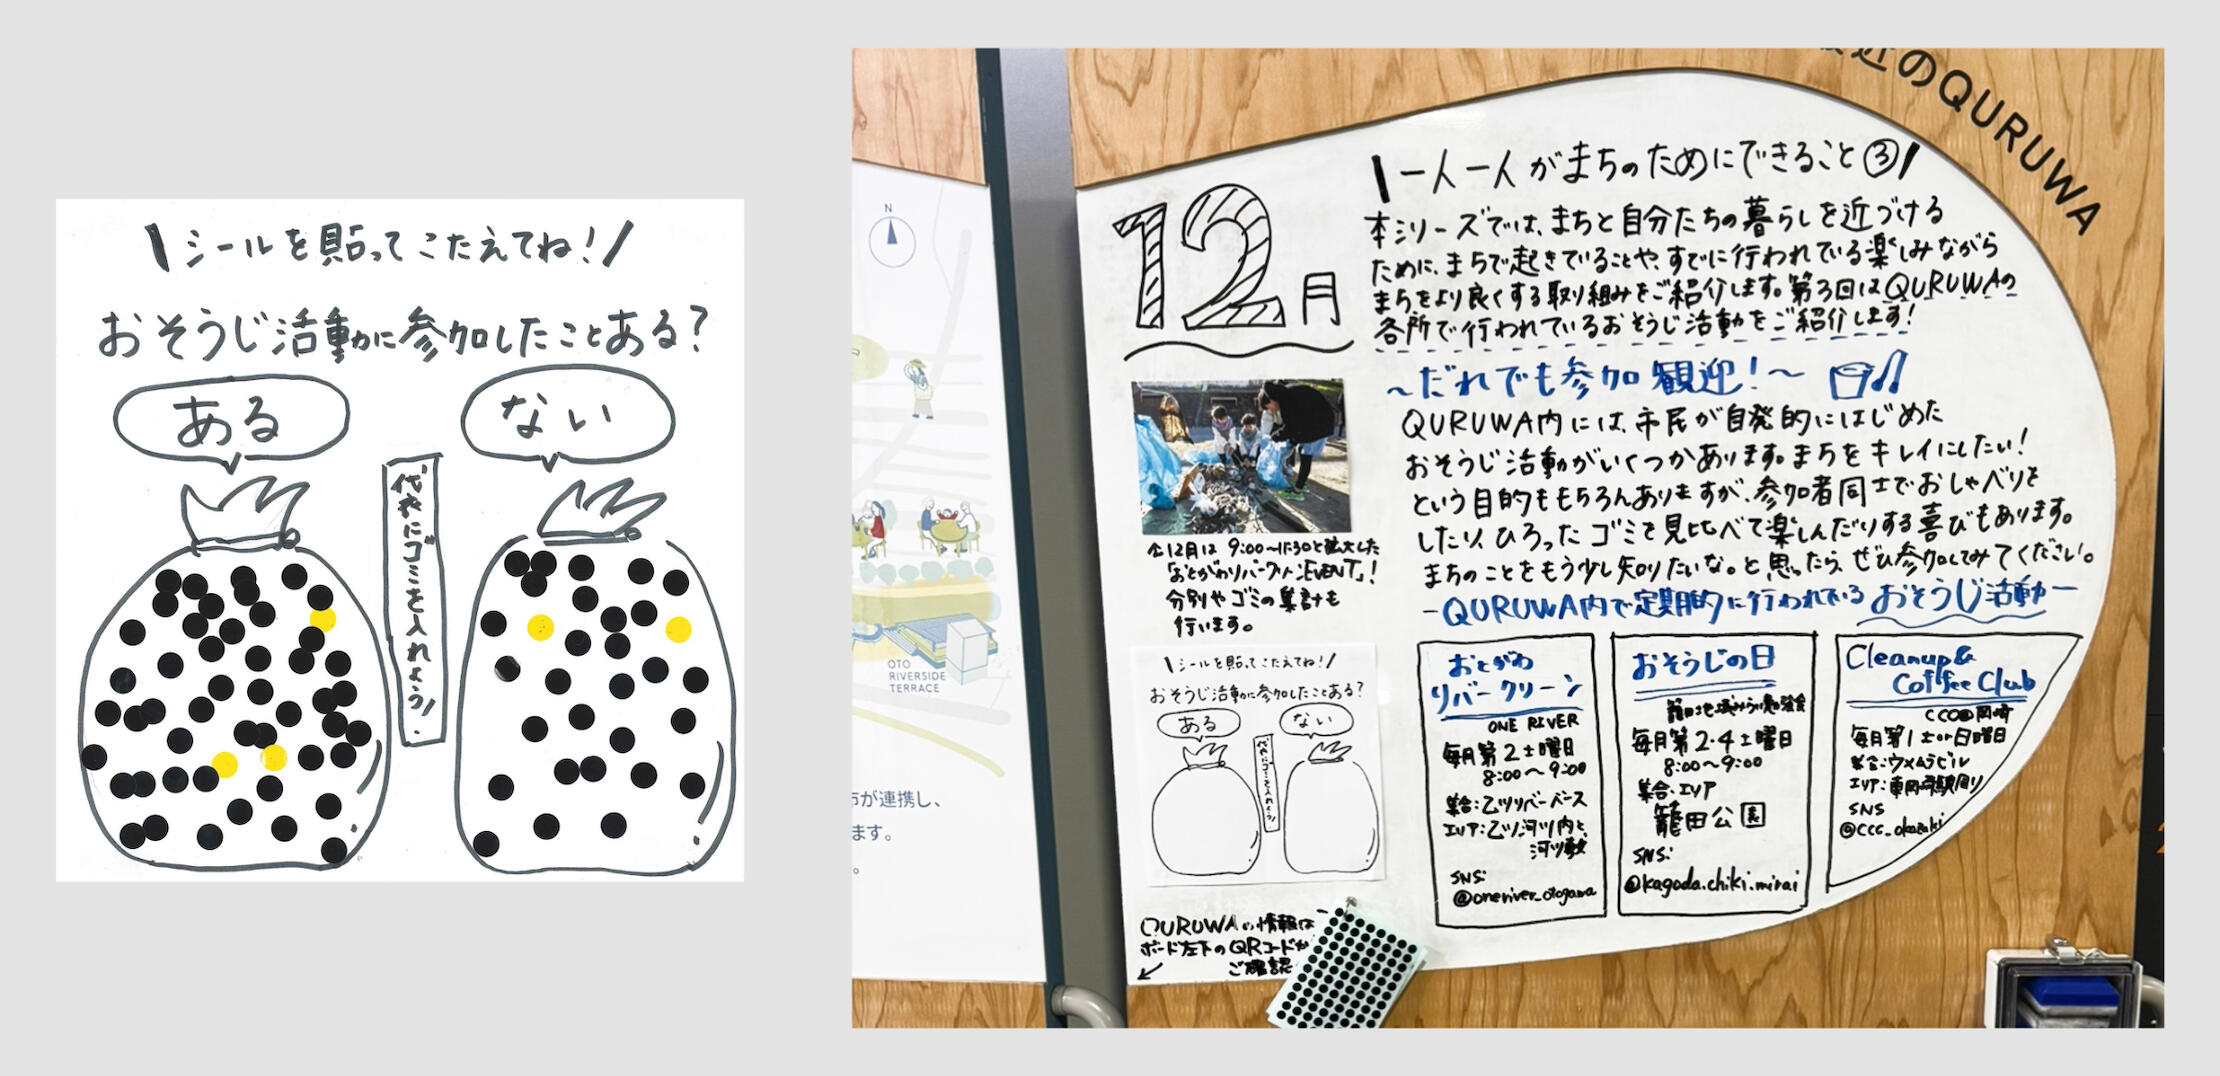 \シールを貼ってこたえてね!/
おそうじ活動に参加したことある?
ある
ない
代わりにゴミを入れよう!
近のQURUWA
N
OTO
RIVERSIDE
TERRACE
が連携し、
ます。
。
12月
\一人一人がまちのためにできること③/
本シリーズでは、まちと自分たちの暮らしを近づける
ために、まちで起きていることや、すでに行われている楽しみながら
まちをより良くする取り組みをご紹介します。第3回はQURUWAの
各所で行われているおそうじ活動をご紹介します!
~だれでも参加 観迎!~
QURUWA内には、市民が自発的にはじめた
おそうじ活動がいくつかあります。まちをキレイにしたい!
という目的ももちろんありますが、参加者同士でおしゃべりを
したり、ひろったゴミを見比べて楽しんだりする喜びもあります。
まちのことをもう少し知りたいな。と思ったら、ぜひ参加してみてください。
⇧12月は 9:00~11:30と拡大した
「おとがわリバークリーンEVENT」!
分別やゴミの集計も
行います。
-QURUWA内で定期的に行われている おそうじ活動-
おとがわ
リバークリーン
ONE RIVER
毎月第2土曜日
8:00~9:00
集合:乙川リバーベース
エリア:乙川河川内と、
河川敷
SNS:
@oneriver_otogawa
おそうじの日
籠田地域みらい勉強会
毎月第2・4土曜日
8:00~9:00
集合・エリア
籠田公園
SNS:
@kagoda.chiki.mirai
Cleanup &
Coffee Club
CCC@岡崎
毎月第1土or日曜日
集合:ウメムラビル
エリア:東岡崎駅周り
SNS
@ccc_okazaki
\シールを貼ってこたえてね!/
おそうじ活動に参加したことある?
ある
ない
代わりにゴミを入れよう!
QURUWAの情報は
ボード左下のQRコードから
ご確認